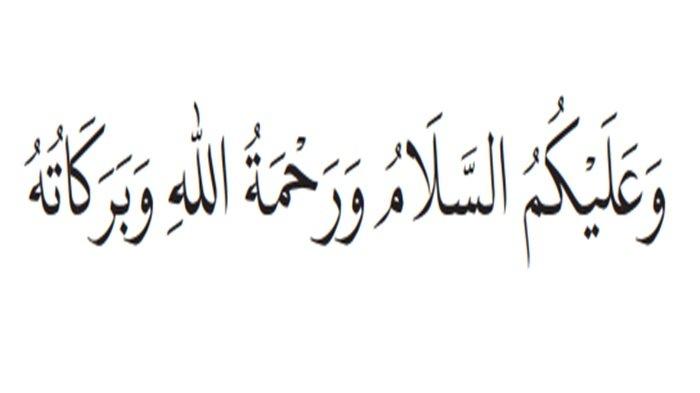 وَعَلَيْكُمُ السَّلَامُ وَرَحْمَةُ اللهِ وَبَرَكَاتُهُ